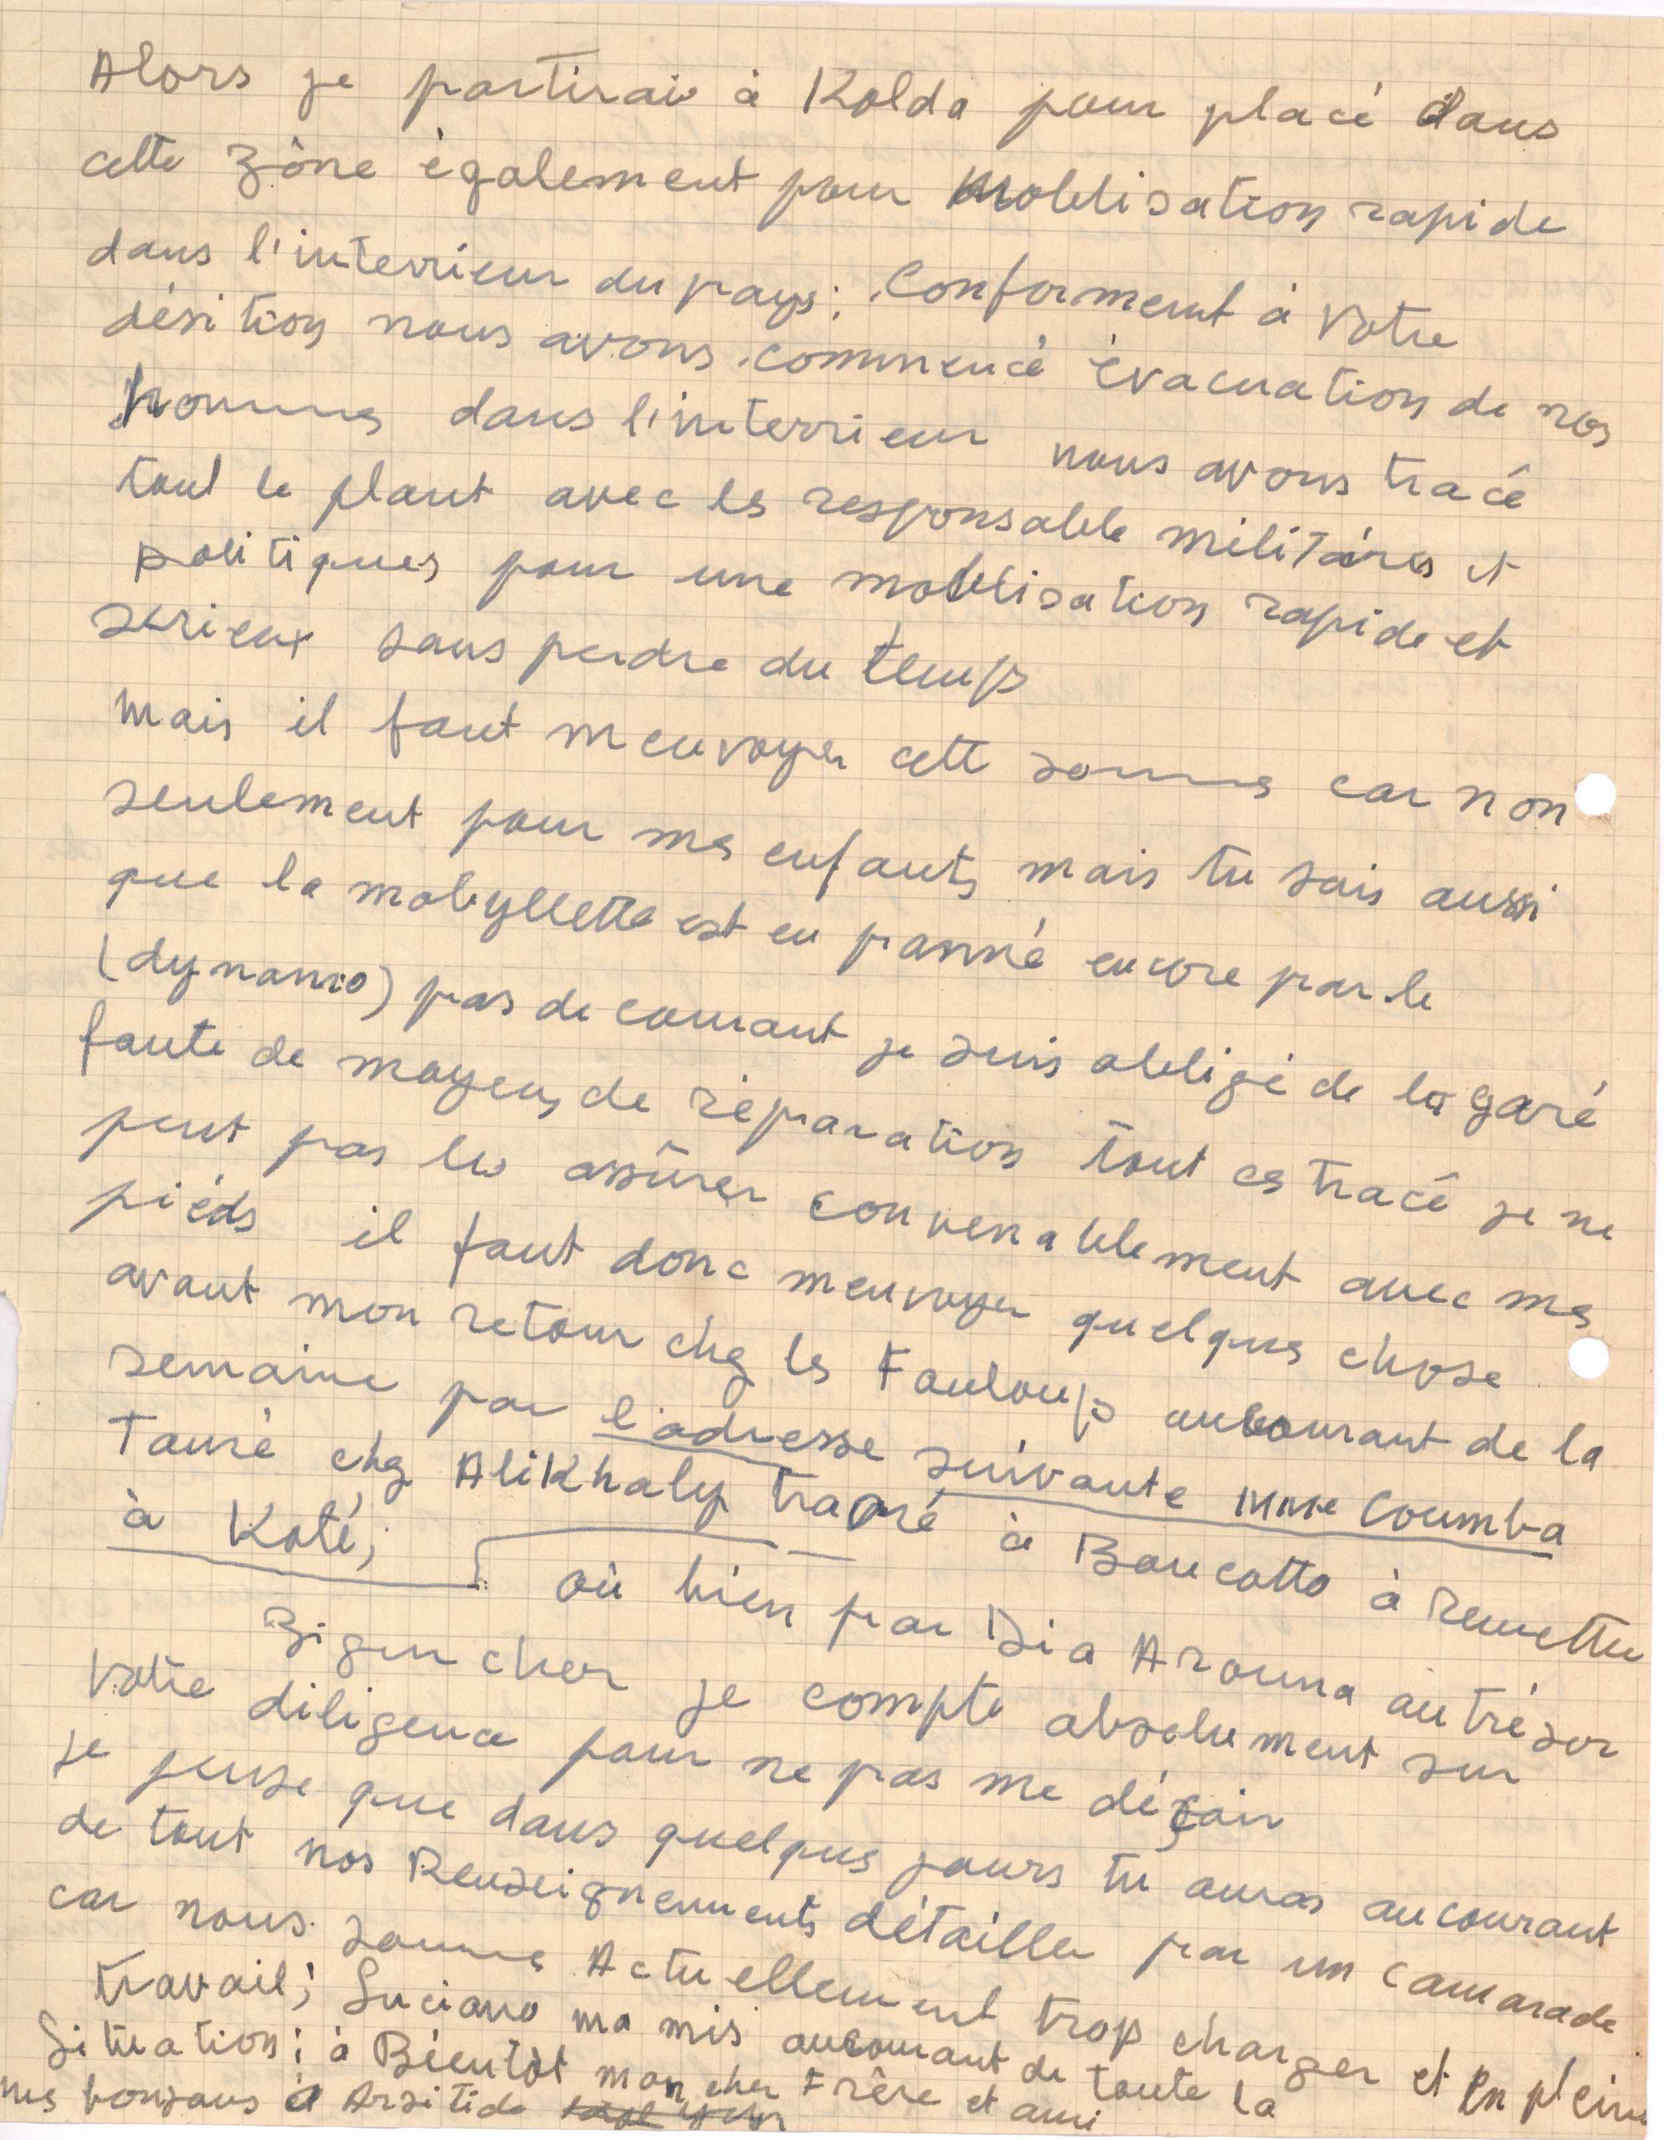 Alors je partirais à Kolda pour placé dans
cette zône également pour mobilisation rapide
dans l'interrieur du pays; Conformement à votre
désition nous avons commencé évacuation de nos
hommes dans l'interrieur nous avons tracé
tout le plant avec les responsable militaires et
politiques pour une mobilisation rapide et
serieux sans perdre du temps
mais il faut menvoyer cett somme car non
seulement pour mes enfants mais tu sais aussi
que la mobyllette est en panné encore par le
(dynamo) pas de courant je suis obligé de la garé
faute de moyens de réparation tout ces tracé je ne
peut pas les assûrer convenablement avec mes
piéds il faut donc menvoyer quelques chose
avant mon retour chez les Fouloups aucourant de la
semaine par l'adresse suivante Mme Coumba
Touré chez Alikhaly traoré à Boucotto à remettre
à Koté; où bien par Dia Arouna au trésor
Zigincher je compte absolument sur
votre diligence pour ne pas me déçair
je pense que dans quelques jours tu auras aucourant
de tout nos Renseignements détailler par un camarade
car nous somme Actuellement trop charger et en plein
travail; Luciano ma mis aucourant de toute la
Situation; à Bientôt mon cher Frère et ami
mes bonjours à Arsitide